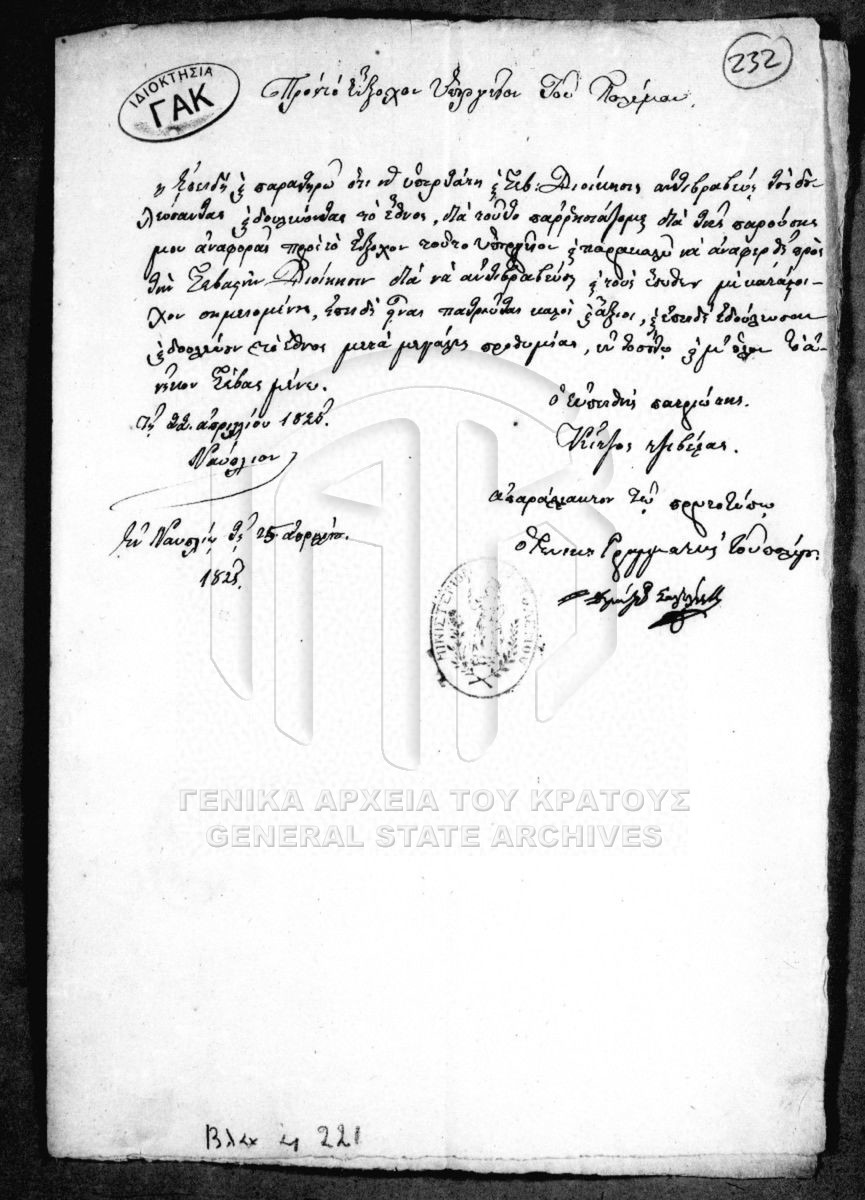 ΙΔΙΟΚΤΗΣΙΑ
ΓΑΚ
232
Πρὸς τὸ ἔξοχον Ὑπουργεῖον τοῦ Πολέμου.
Ἐπειδὴ παρατηρῶ ὅτι ἡ ὑπερτάτη Σεβ: Διοίκησις ἀντιβραβεύει τοὺς δου
λεύσαντας δουλεύοντας τὸ ἔθνος, διὰ τοῦτο παρρησιάζομαι διὰ τῆς παρούσης
μου ἀναφορᾶς πρὸς τὸ ἔξοχον τοῦτο ὑπουργεῖον παρακαλῶ νὰ ἀναφερθῇ πρὸς
τὴν Σεβαστὴν Διοίκησιν διὰ νὰ ἀντιβραβεύσῃ τοὺς ἔνδον μὲ κατάλο-
γον σημειωμένους, ἐπειδὴ καλοὶ ἄξιοι, ἐπειδὴ ἐδούλευσαν
δουλεύουν τὸ ἔθνος μετὰ μεγάλης προθυμίας, μ' ὅλον τὸ ἀ-
νῆκον σέβας μένω.
Τῇ 22 ἀπριλίου 1825.
Ναύπλιον
Ὁ εὐπειθὴς πατριώτης.
Κίτζος τζαβέλας.
ἀπαράλλακτον τῷ πρωτοτύπῳ
Ἐν Ναυπλίῳ τῇ 25 ἀπριλίου.
1825.
Ὁ Γενικ: Γραμματεὺς τοῦ πολέμ:
ΜΙΝΙΣΤΕΡΙΟΝ
ΓΕΝΙΚΑ ΑΡΧΕΙΑ ΤΟΥ ΚΡΑΤΟΥΣ
GENERAL STATE ARCHIVES
221